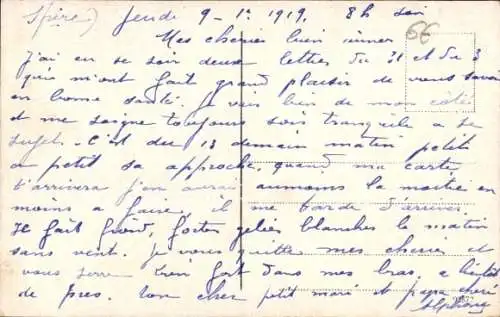 (Spire) Jeudi 9-1º 1919, 8h soir
6E
Mes chéries bien aimées
J'ai eu ce soir deux lettres du 31 et du 3
qui m'ont fait grand plaisir de vous savoir
en bonne santé. Je vais bien de mon côté
et me soigne toujours soit tranquille a ce
sujet. C'est du 13 demain matin petit
a petit sa approche, quand ma carte
t'arrivera j'en aurai aumoins la moitié en
moins a faire, il me tarde d'arriver.
Il fait froid, fortes gelées blanches le matin
sans vent. Je vous quitte mes chéries et
vous serre bien fort dans mes bras, a bientôt
de près. Ton cher petit mari et papa chéri
Alphonse